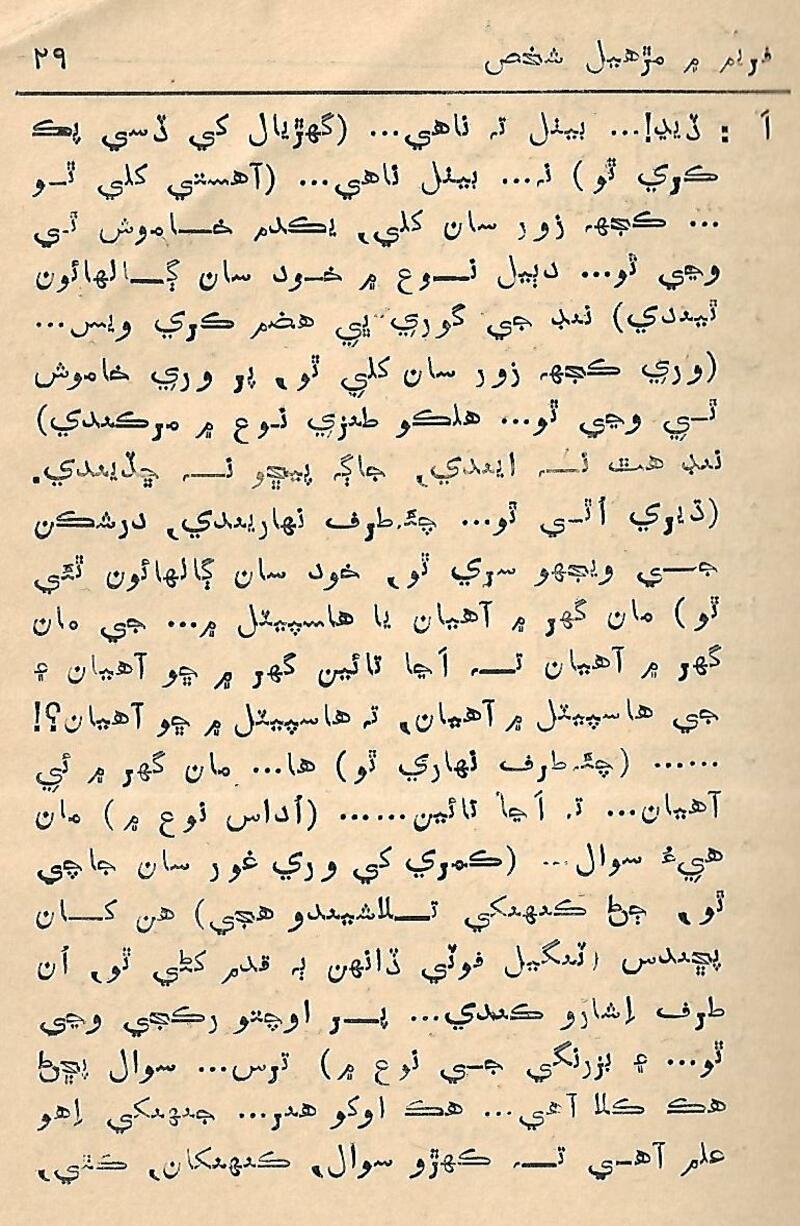 فريم ۾ مڙهيل شخص ۲۹
آ : ڏيڍ!... بيٺل ته ناهي... (گهڙيال کي ڏسي پڪ
ڪري ٿو) نه... بيٺل ناهي... (آهستي کلي ٿو
... ڪجهه زور سان کلي، يڪدم خاموش ٿي
وڃي ٿو... دٻيل نوع ۾ خود سان ڳالهائون
ٿيندي) ننڊ جي گوري پي هضم ڪري ويس...
(وري ڪجهه زور سان کلي ٿو، پر وري خاموش
ٿي وڃي ٿو... هلڪو طنزي نوع ۾ مرڪندي)
ننڊ هٿ نه ايندي، جاڳ پيڇو نه ڇڏيندي.
(ڌيري اُٿي ٿو... چئه طرف نهاريندي، درشڪن
جي ويجهو سري ٿو، خود سان ڳالهائون ٿئي
ٿو) مان گهر ۾ آهيان يا هاسپيٽل ۾... جي مان
گهر ۾ آهيان ته اَڃا تائين گهر ۾ ڇو آهيان ۽
جي هاسپيٽل ۾ آهيان، ته هاسپيٽل ۾ ڇو آهيان؟!
...... (چئه طرف نهاري ٿو) ها... مان گهر ۾ ئي
آهيان... ته اَڃا تائين...... (اُداس نوع ۾) مان
هيءُ سوال... (ڪمري کي وري غور سان جاچي
ٿو، ڄڻ ڪنهنکي تلاشيندو هجي) هن کان
پڇندس (ٽنگيل فوٽي ڏانهن ٻه قدم کڻي ٿو، اُن
طرف اِشارو ڪندي... پر اوچتو رڪجي وڃي
ٿو... ۽ بزرنگي جي نوع ۾) ترس... سوال پڇڻ
هڪ ڪلا آهي... هڪ اوکو هنر... جنهنکي اِهو
علم آهي ته ڪهڙو سوال، ڪنهنکان، ڪٿي،